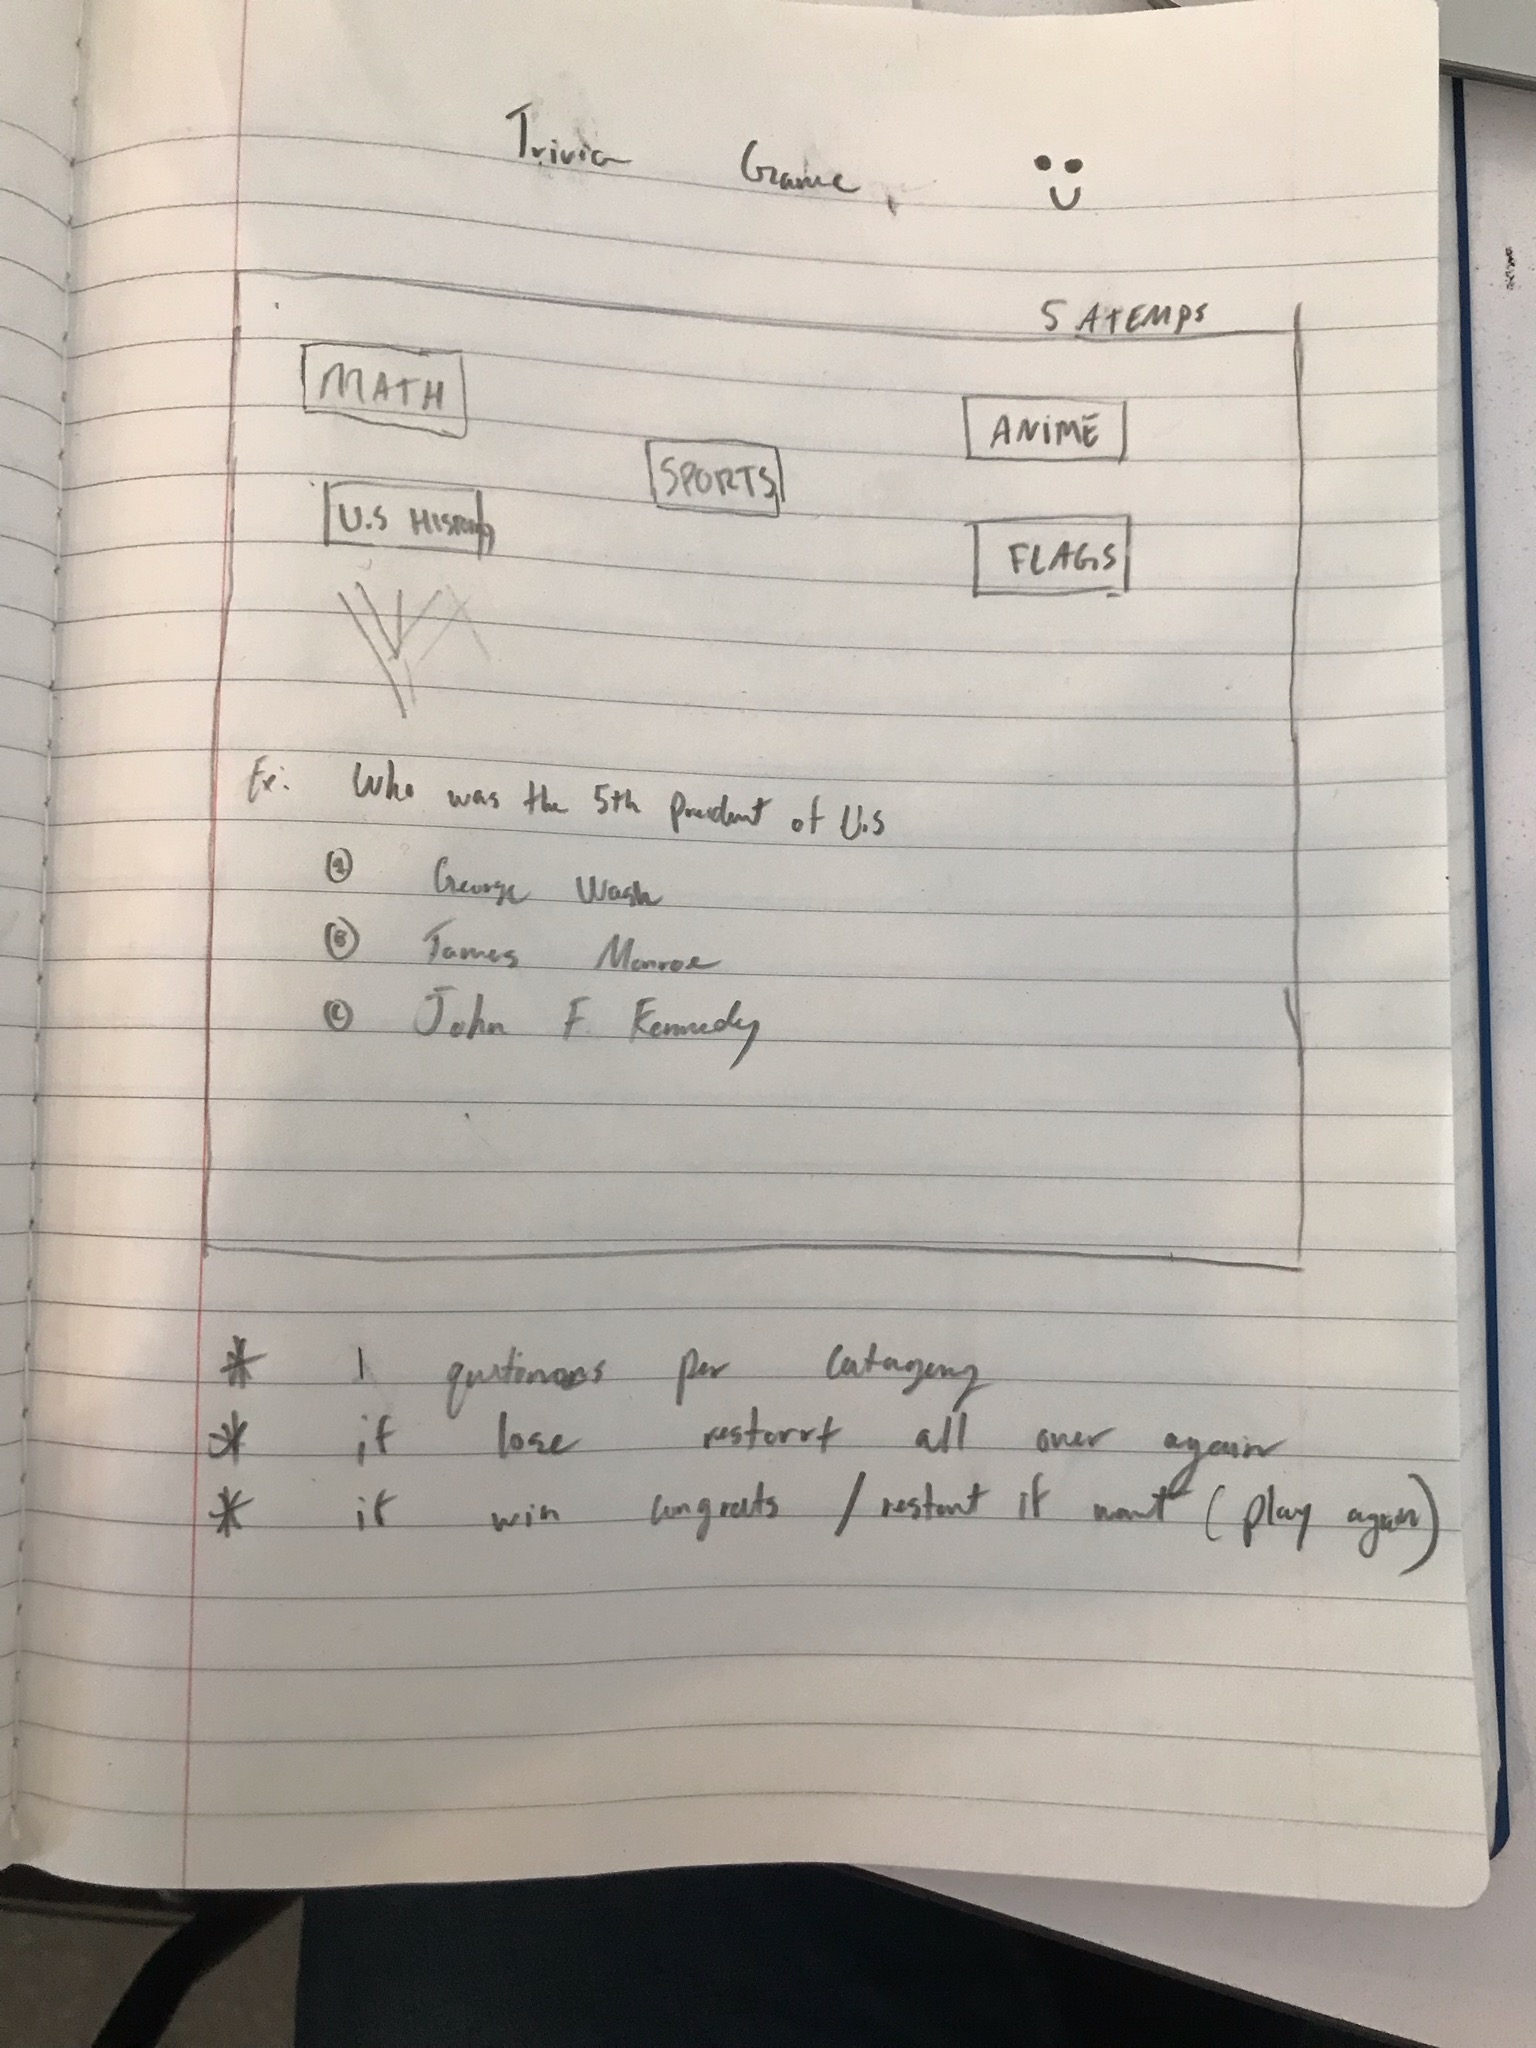 Trivia Game
5 ATEMPS
MATH
ANIME
SPORTS
U.S HISTORY
FLAGS
Ex: Who was the 5th president of U.S
A George Wash
B James Monroe
C John F. Kennedy
* 1 per
* if lose restart all over again
* if win congrats / restart if want (play again)